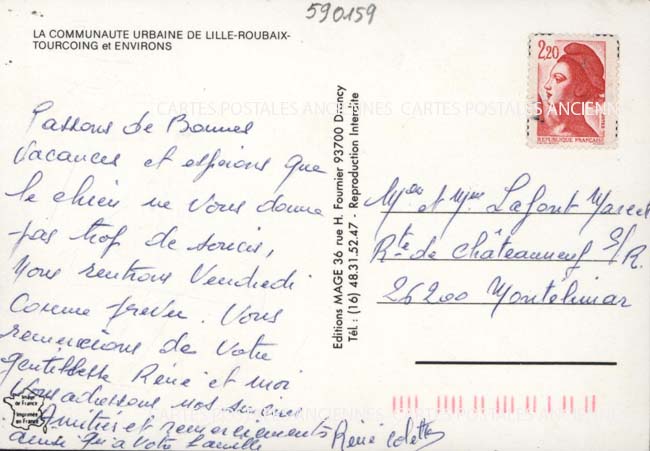 590159
LA COMMUNAUTE URBAINE DE LILLE-ROUBAIX-
TOURCOING et ENVIRONS
CARTES POSTALES ANCIENNES
CARTES POSTALES ANCIENN
Passons de Bonnes
Vacances et espérons que
le chien ne Vous donne
pas trop de soucis,
Nous rentrons Vendredi
Comme prévu. Vous
remercions de Votre
gentillesse René et moi
Vous adressons nos
Amitiés et remerciements
ainsi qu'a Votre famille
René Colette
Image
de France
Imprimée
en France
Editions MAGE 36 rue H. Fournier 93700 Drancy
Tél. : (16) 48.31.52.47 - Reproduction Interdite
2,20
REPUBLIQUE FRANÇAISE
Mr et Mme Lafont Marcel
Rte de Châteauneuf S/R.
26200 Montélimar